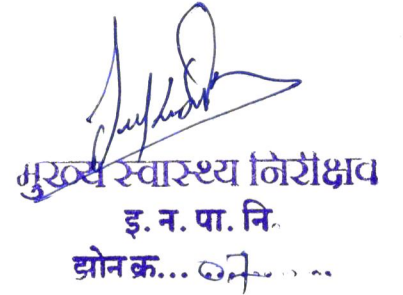 मुख्य स्वास्थ्य निरीक्षक
इ. न. पा. नि.
झोन क्र... ०७